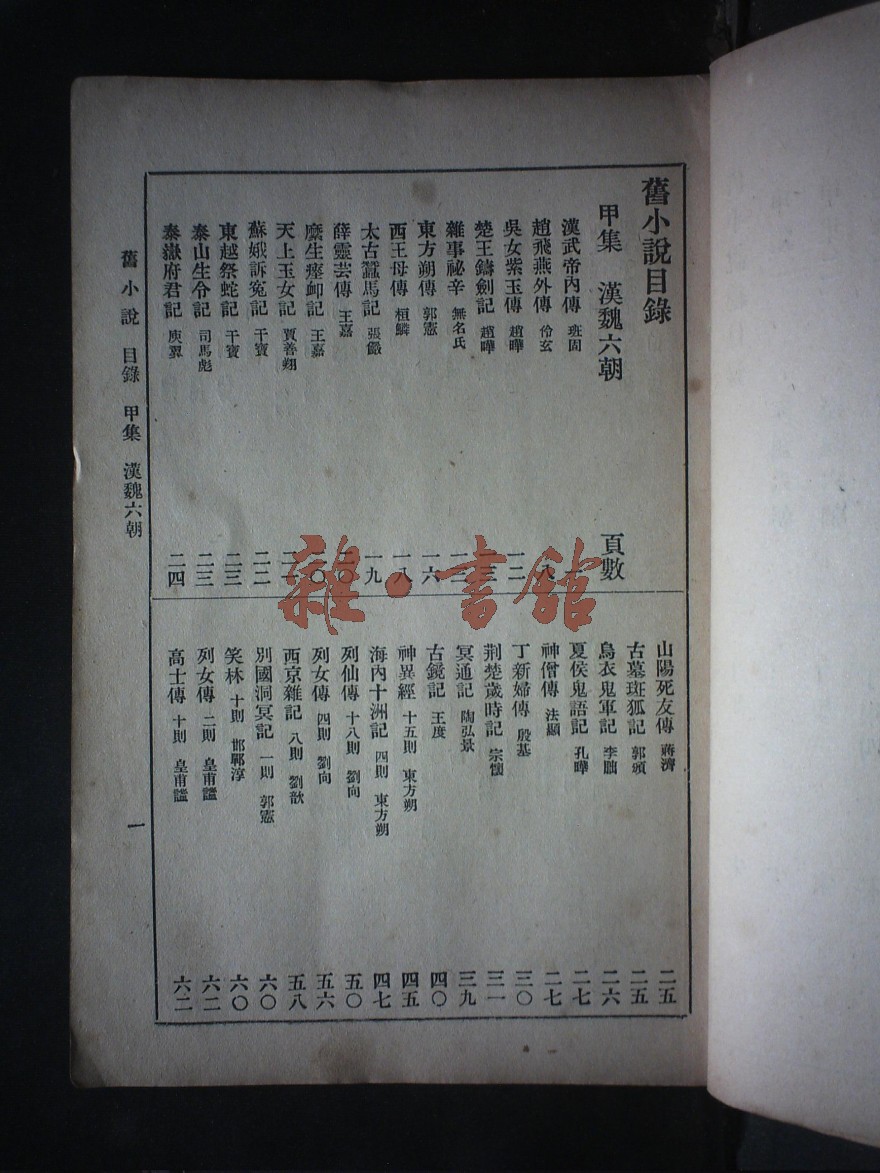 舊小說目錄
甲集 漢魏六朝 頁數
漢武帝內傳 班固 一
趙飛燕外傳 伶玄 八
吳女紫玉傳 趙曄 一二
楚王鑄劍記 趙曄 一三
雜事祕辛 無名氏 一三
東方朔傳 郭憲 一六
西王母傳 桓驎 一八
太古蠶馬記 張儼 一九
薛靈芸傳 王嘉 二〇
麋生瘞卹記 王嘉 二〇
天上玉女記 賈善翔 二一
蘇娥訴冤記 干寶 二二
東越祭蛇記 干寶 二三
泰山生令記 司馬彪 二三
泰嶽府君記 庾翼 二四
山陽死友傳 蔣濟 二五
古墓斑狐記 郭頒 二五
烏衣鬼軍記 李朏 二六
夏侯鬼語記 孔曄 二七
神僧傳 法顯 二七
丁新婦傳 殷基 三〇
荆楚歲時記 宗懍 三一
冥通記 陶弘景 三九
古鏡記 王度 四〇
神異經 十五則 東方朔 四五
海內十洲記 四則 東方朔 四七
列仙傳 十八則 劉向 五〇
列女傳 四則 劉向 五六
西京雜記 八則 劉歆 五八
別國洞冥記 一則 郭憲 六〇
笑林 十則 邯鄲淳 六〇
列女傳 二則 皇甫謐 六二
高士傳 十則 皇甫謐 六二
舊小說 目錄 甲集 漢魏六朝 一
雜·書館